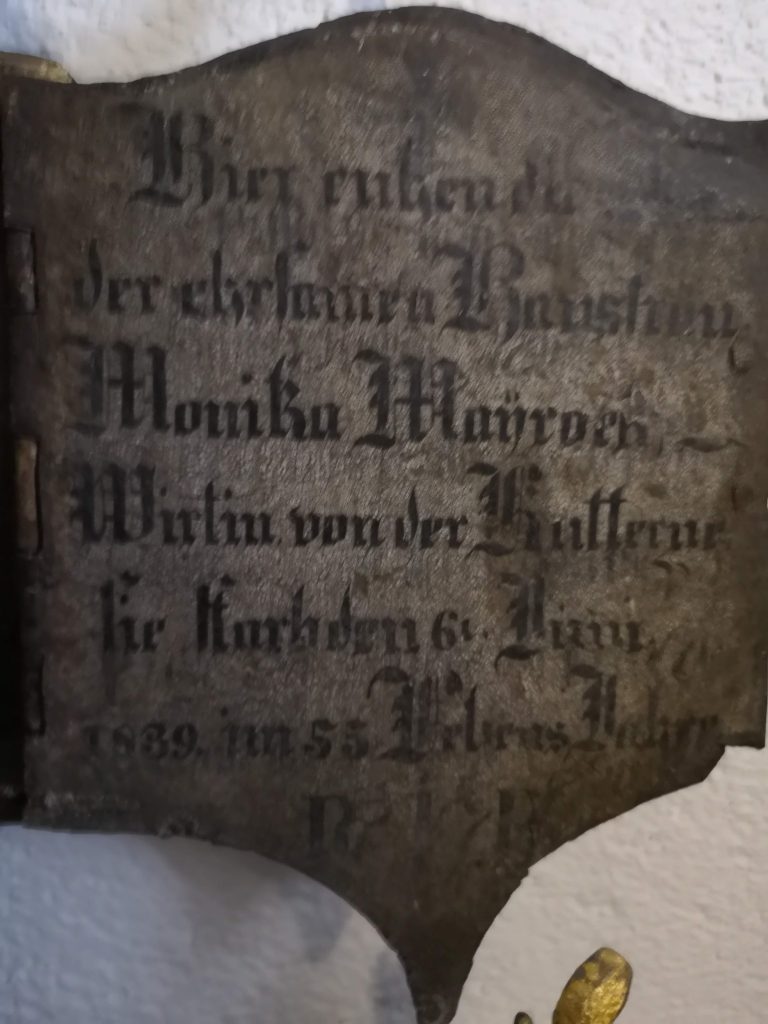 Hier ruhen die
der ehrsamen Hausfrau,
Monika Mayroth,
Wirtin von der
sie starb den 6t. Juni
1839. im 55 Lebens Jahre
R I P